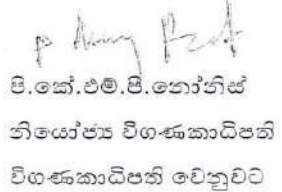 පී.කේ.එම්.පී.නෝනිස්
නියෝජ්‍ය විගණකාධිපති
විගණකාධිපති වෙනුවට